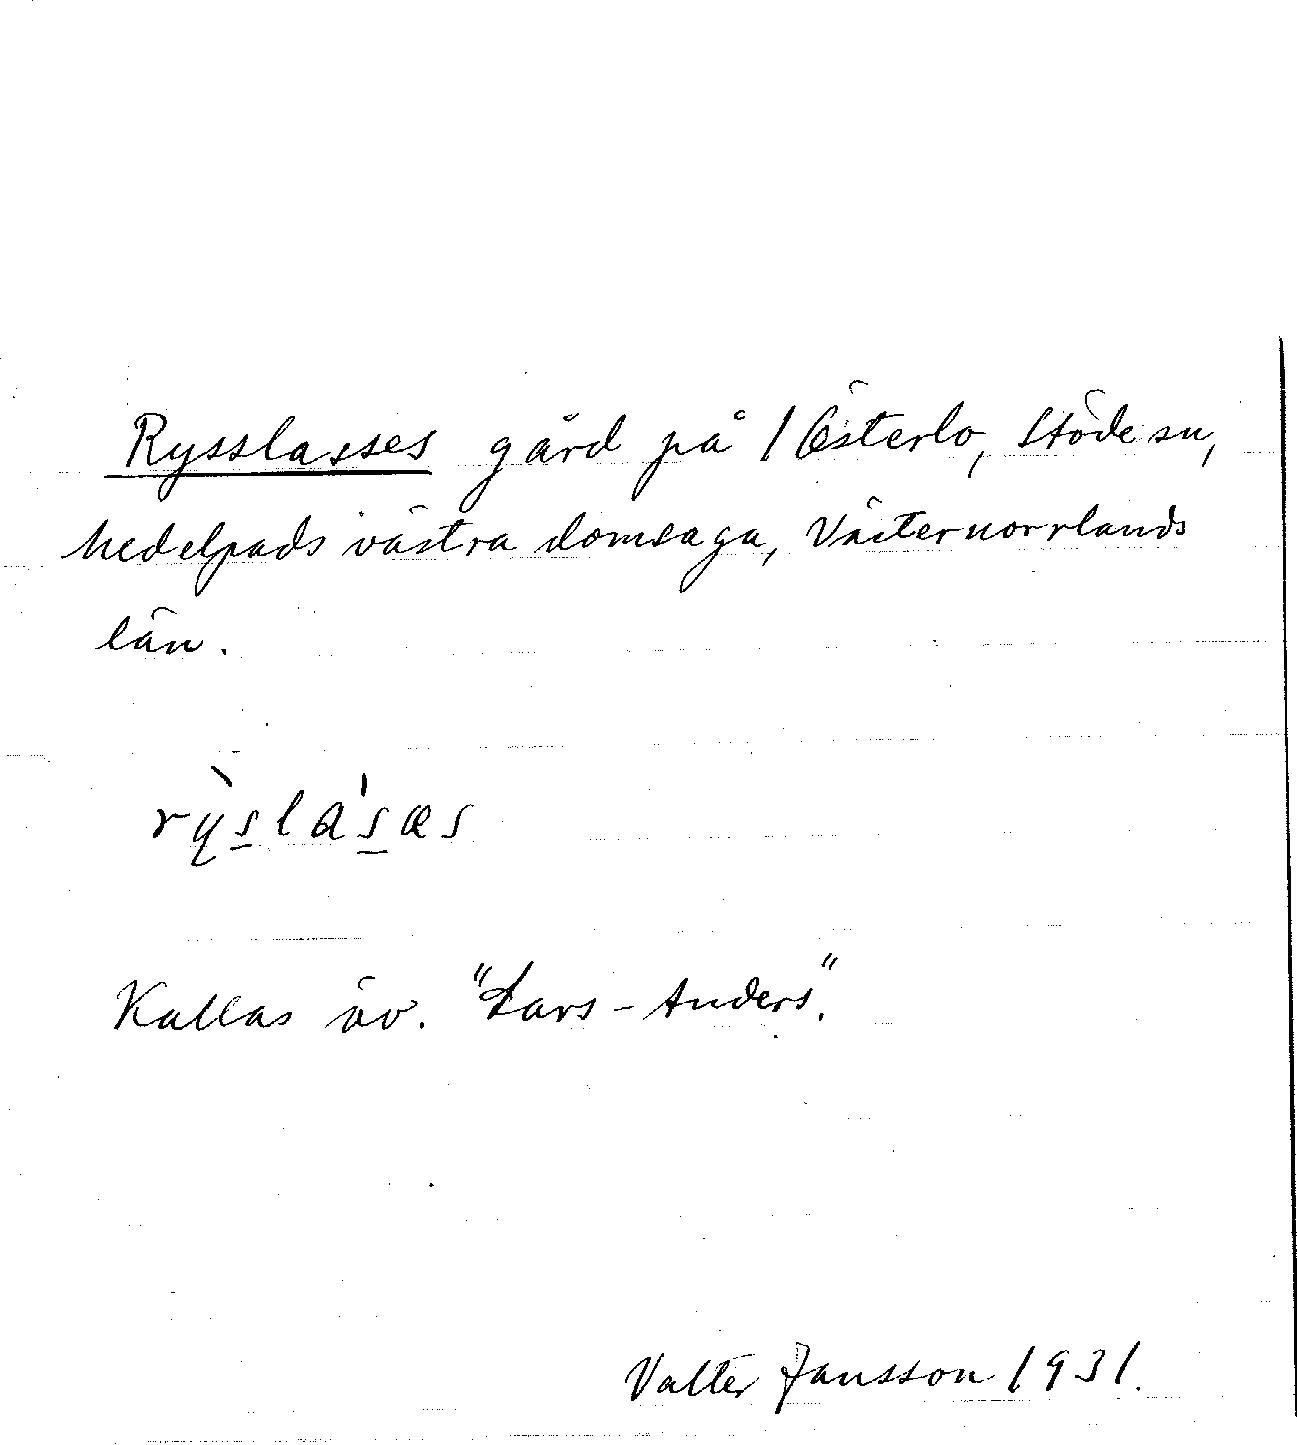 Rysslasses gård på 1 Österlo, Stöde sn,
Medelpads västra domsaga, Västernorrlands
län.
rỳs̲la's̲æs
Kallas äv. "Lars-Anders".
Valter Jansson 1931.